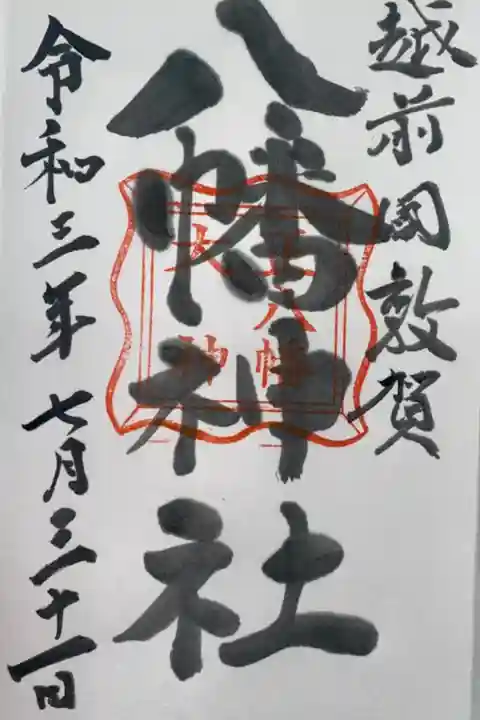 越前国敦賀
八幡神社
令和三年七月三十一日
正八幡
大神